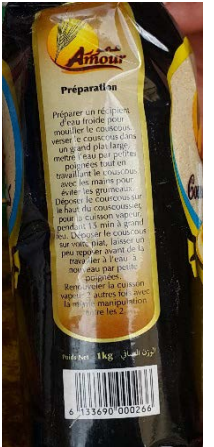 Amour
Préparation
Préparer un récipient
d'eau froide pour
mouiller le couscous,
verser le couscous dans
un grand plat large,
mettre l'eau par petites
poignées tout en
travaillant le couscous
avec les mains pour
éviter les grumeaux.
Déposer le couscous sur
le haut du couscoussier
pour la cuisson vapeur
pendant 15 min à grand
feu. Déposer le couscous
sur votre plat, laisser un
peu reposer avant de la
travailler à l'eau à
nouveau par petite
poignées.
Renouveler la cuisson
vapeur 2 autres fois avec
la même manipulation
entre les 2.
Poids Net : 1kg الوزن الصافي
6 133690 000266